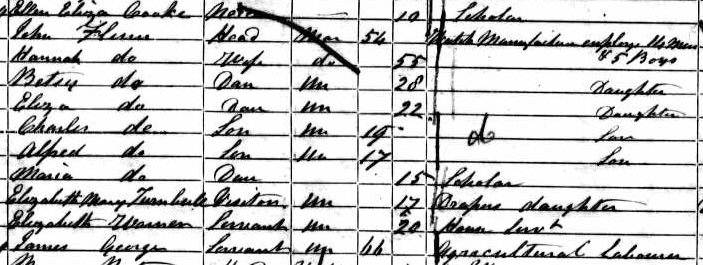 Ellen Eliza Cooke Niece 10 Scholar
John Flinn Head Mar 54 Match Manufacturer employs 14 Men
& 5 Boys
Hannah do Wife do 55
Betsy do Dau Un 28 Daughter
Eliza do Dau Un 22 Daughter
Charles do Son Un 19 do Son
Alfred do Son Un 17 Son
Maria do Dau 15 Scholar
Elizabeth Mary Turnbull Visitor Un 17 Drapers daughter
Elizabeth Warner Servant Un 20 House Servt
James George Servant Un 66 Agricultural Labourer